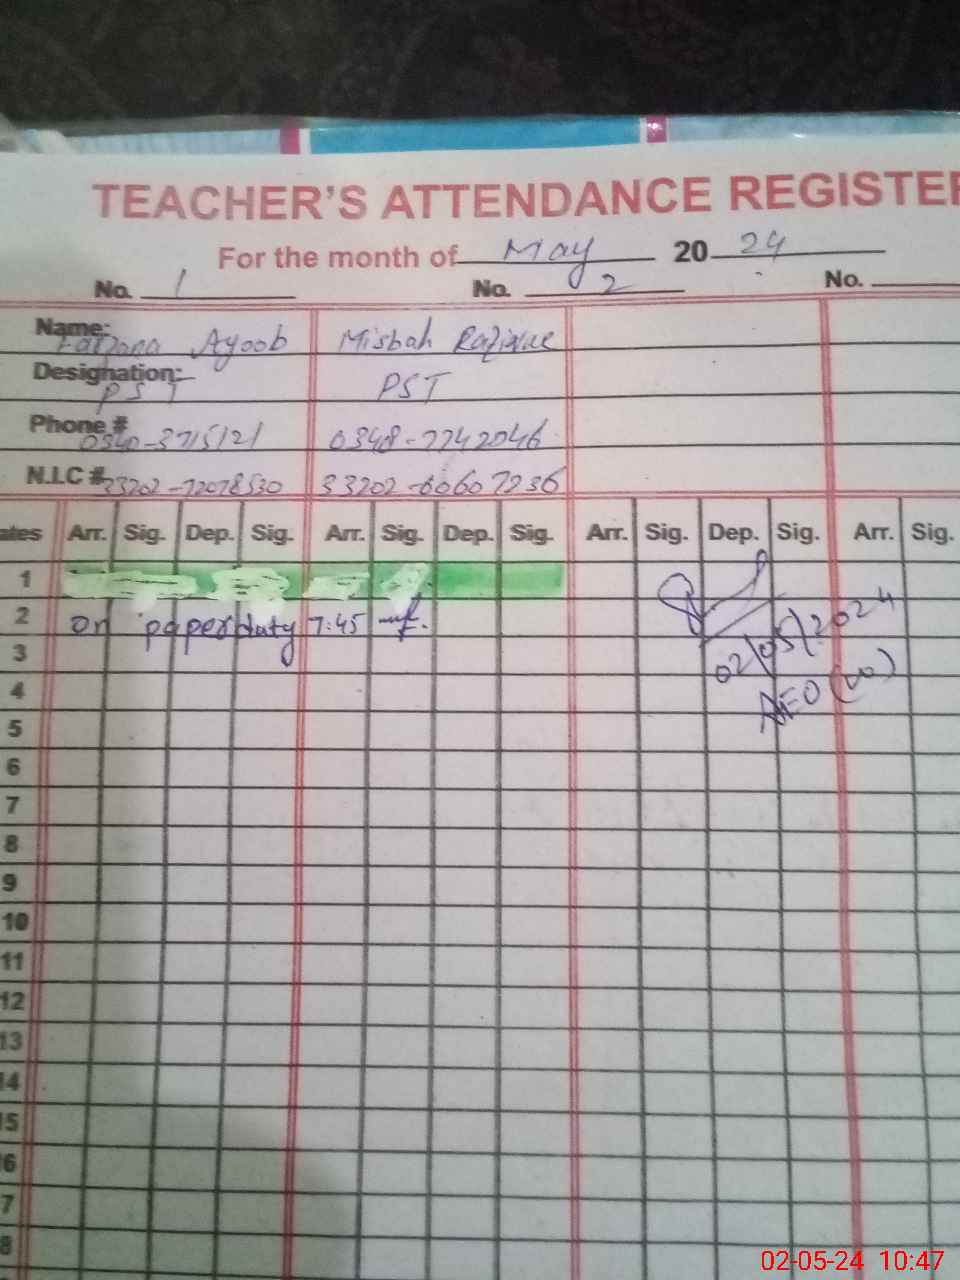 TEACHER'S ATTENDANCE REGISTER
For the month of May 20 24
No. 1 No. 2 No.
Name: Farzana Ayoob Misbah
Designation: PST PST
Phone # 0340-3715121 0348-7742046
N.I.C # 33202-72078530 33202-60607236
ates Arr. Sig. Dep. Sig. Arr. Sig. Dep. Sig. Arr. Sig. Dep. Sig. Arr. Sig.
1
2 on paper duty 7:45
02/05/2024
3
4
AEO
5
6
7
8
9
10
11
12
13
14
15
6
7
8
02-05-24 10:47